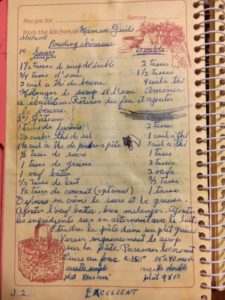 Recipe for
Serves
from the kitchen of Maman Guid
Pouding Chomeur
1º Sauce Double
1½ tasses de sirop d'érable 2 tasses
¾ tasse d'eau 1½ tasses
2 cuil à thé de beurre 4 cuil à thé
Mélanger le sirop et l'eau Amener
à ébullition. Retirer du feu et ajouter
le beurre.
2º Gâteau
1 tasse de farine 2 tasses
½ cuil à thé de sel 1 cuil à thé
1½ cuil à thé de poudre à pâte 3 cuil à thé
½ tasse de sucre 1 tasse
¼ tasse de graisse
1 oeuf battu 2 oeufs
⅓ tasse de lait ⅔ tasse
½ tasse de coconut (optionel) 1 tasse
Défaire en crème le sucre et la graisse.
Ajouter l'oeuf battu, bien mélanger. Ajouter
les ingrédients secs en alternant avec le lait.
Étendre la pâte dans un plat graissé
Verser soigneusement le sirop
sur la pâte. Parsemer le coconut
Cuire au four à 350° 35 à 40 min
recette double
plat plat 9 x 13
J 2. EXCELLENT